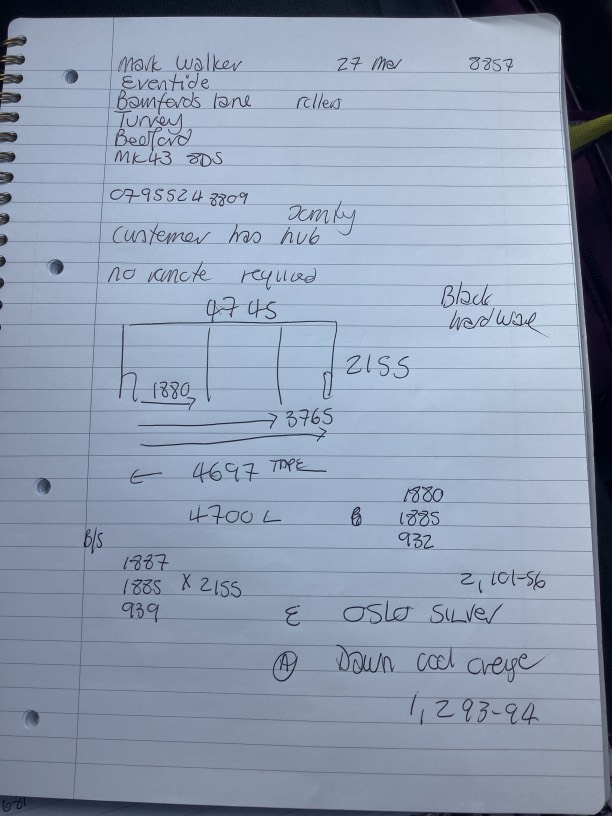 Mark Walker 27 Mar 8857
Eventide
Bamfords lane rollers
Turvey
Bedford
MK43 8DS
07955248809
Somfy
customer has hub
no remote required
Black
hardware
4745
2155
1880
3765
← 4697 TAPE
4700 L
1880
1885
932
B/S
1887
1885 x 2155
939
2,101-56
E OSLO SILVER
A Dawn
1,293-94